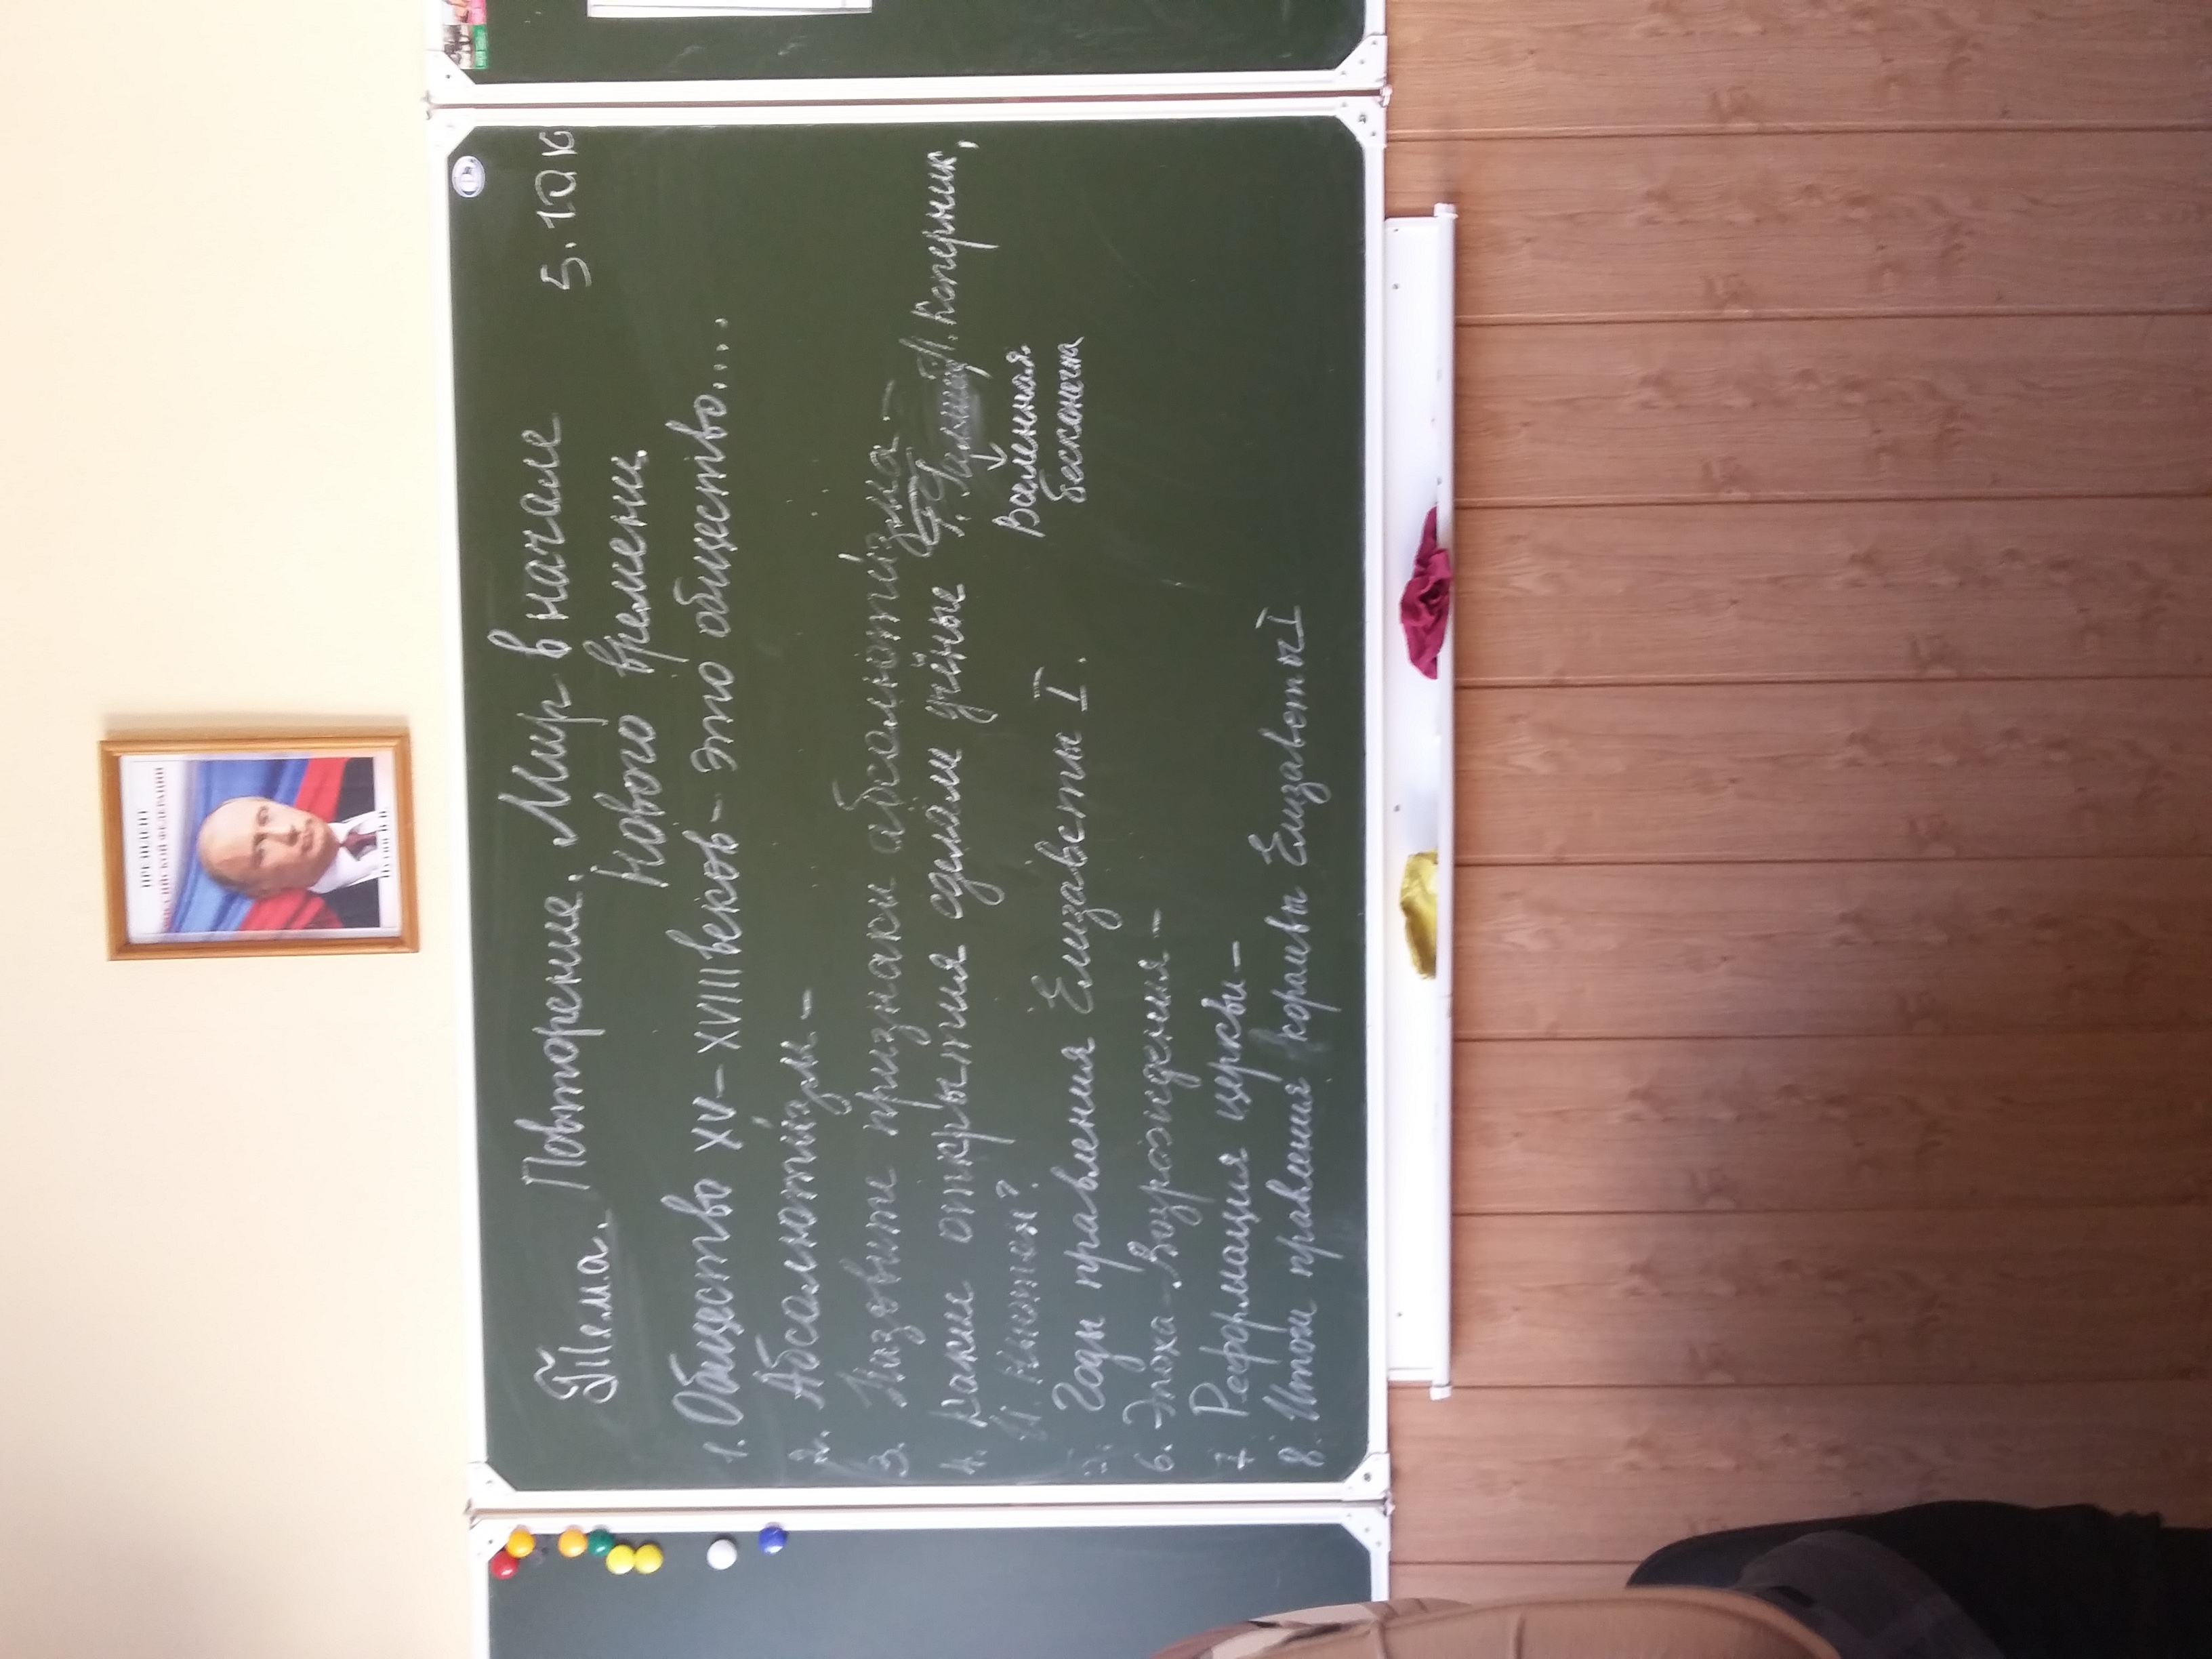 ПРЕЗИДЕНТ
РОССИЙСКОЙ ФЕДЕРАЦИИ
Тема. Повторение. Мир в начале 5. 10
Нового времени.
1. Общество XV – XVIII веков – это общество....
2. Абсолютизм –
3. Назовите признаки абсолютизма –
4. Какие открытия сделали учёные Коперник,
И. Ньютон?
Вселенная
бесконечна
5. Годы правления Елизаветы I.
6. Эпоха Возрождения –
7. Реформация церкви –
8. Итоги правления королевы Елизаветы I